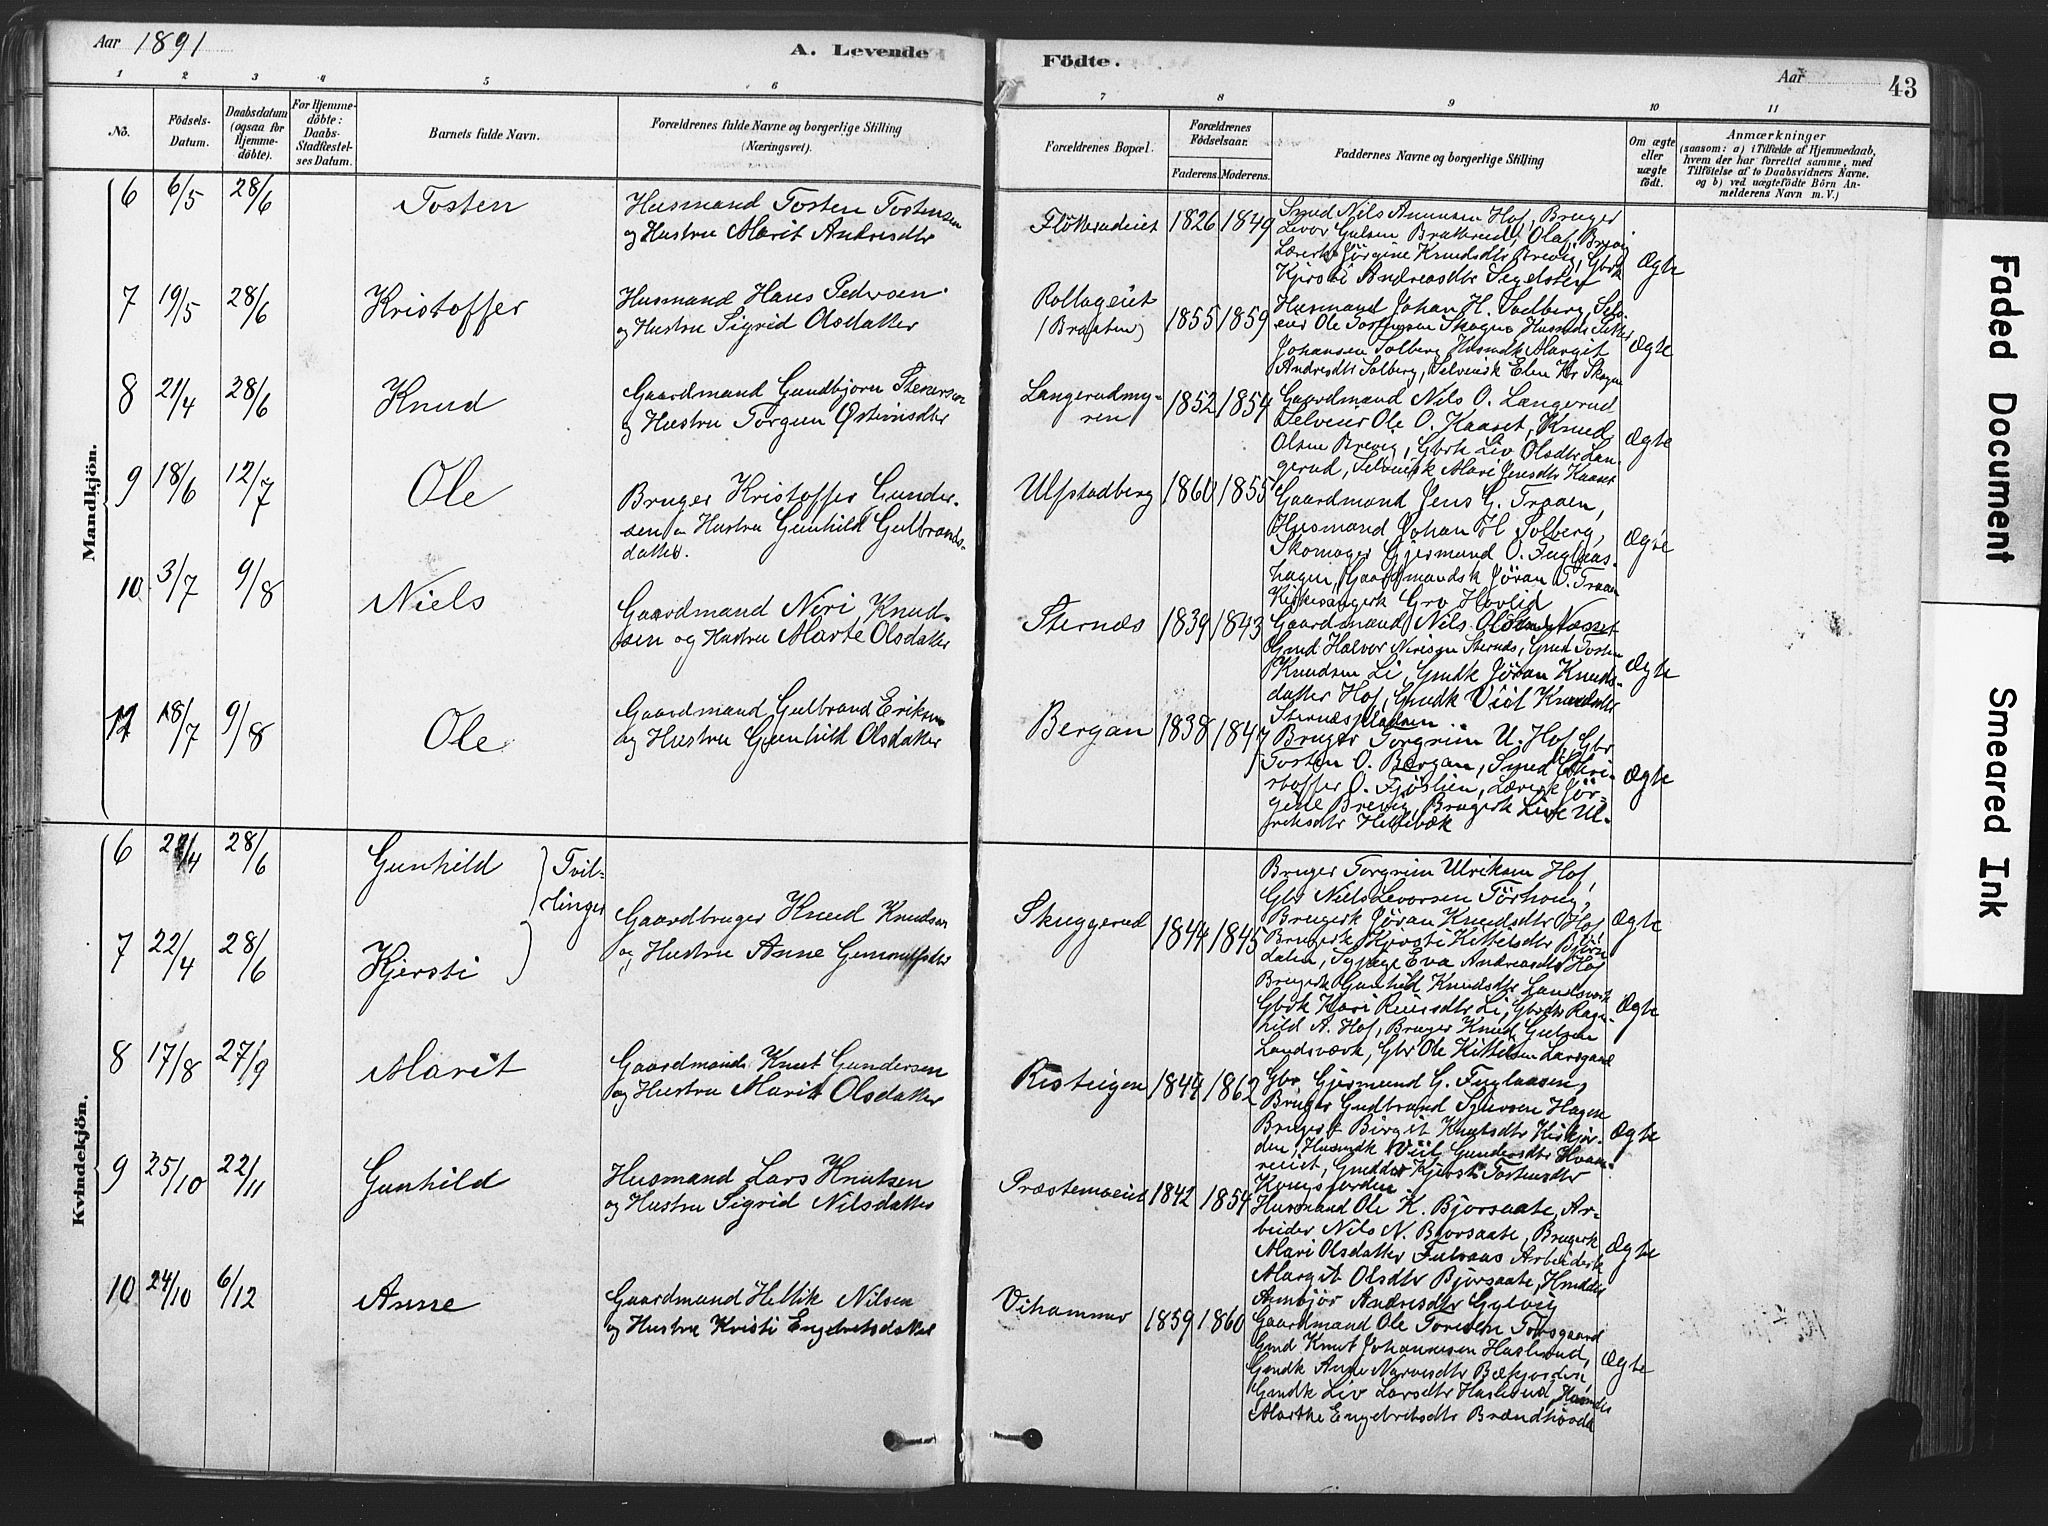 Aar 1891
A. Levende
Födte.
Aar
43
1 2 3 4 5 6 7 8 9 10 11
No.
Födsels-
Datum.
Daabsdatum
(ogsaa for
Hjemme-
döbte).
For Hjemme-
döbte:
Daabs-
Stadfæstel-
ses Datum.
Barnets fulde Navn.
Forældrenes fulde Navne og borgerlige Stilling
(Næringsvei).
Forældrenes Bopæl.
Forældrenes
Födselsaar.
Faderens. Moderens.
Faddernes Navne og borgerlige Stilling
Om ægte
eller
uægte
födt.
Anmærkninger
(saasom: a) i Tilfælde af Hjemmedaab,
hvem der har forrettet samme, med
Tilföielse af to Daabsvidners Navne.
og b) ved uægtefödte Börn An-
melderens Navn m. V.)
Mandkjön.
6 6/5 28/6 Tosten
Husmand Tosten Tostensen
og Hustru Marit Andresdtr
Flötterudeiet 1826 1849
Smed Nils Amunsen Hof, Bruger
Levor Gulsen Bratterud, Olaf Brevig
Lærerk Jörgine Knudsdtr Brevig, Gbrk
Kjersti Andreasdtr
Ægte
7 19/5 28/6 Kristoffer
Husmand Hans Pedersen
og Hustru Sigrid Olsdatter
Rollageiet
(Braaten)
1855 1859
Husmand Johan H. Solberg, Selv-
eier Ole Skogen
Johansen Solberg, Husmdk Margit
Andresdtr Solberg, Selveierk Elen Kr. Skogen
Ægte
8 21/4 28/6 Knud
Gaardmand Gundbjorn Stenersen
og Hustru Torgun Östensdtr
Langerudmy-
ren
1852 1854
Gaardmand Nils O. Langerud
Selveier Ole O. Kaaset, Knud
Olsen Brevig, Gbrk Liv Olsdtr Lan-
gerud, Selveierk Mari Jensdtr Kaaset
Ægte
9 18/6 12/7 Ole
Bruger Kristoffer Gunder-
sen og Hustru Gunhild Gulbrands-
datter.
Ulfstadberg 1860 1855
Gaardmand Jens G. Traaen,
Husmand Johan H. Solberg,
Skomager Gjermund O. Fuglaas-
hagen, Gaardmandsk Jöran O. Traaen
Kirkesangerk Gro Hovlid
Ægte
10 3/7 9/8 Niels
Gaardmand Neri Knud-
sen og Hustru Marte Olsdatter
Sternæs 1839 1843
Gaardmand Nils Olsen Næsset
Gmd Halvor Nirisen Sternæs, Gmd Tosten
Knudsen Li, Gmdk Jöran Knuds-
datter Hof, Gmdk Viol Knudsdtr
Sternæspladsen
Ægte
11 18/7 9/8 Ole
Gaardmand Gulbrand Eriksen
og Hustru Gunhild Olsdatter
Bergan 1838 1847
Bruger Torgrim U. Hof, Gbr
Tosten O. Bergan, Smed Kri-
stoffer O. Fjöslien, Lærerk Jör-
gine Brevig, Brugerk Live Ul-
riksdtr Hellebæk
Ægte
Kvindekjön.
6 22/4 28/6 Gunhild
Tvil-
linger
Gaardbruger Knud Knudsen
og Hustru Anne
Skuggerud 1844 1845
Bruger Torgrim Ulriksen Hof,
Gbr Niels Levorsen Törhoug,
Brugerk Jöran Knudsdtr Hof,
Brugerk Kjersti Kittelsdtr Björn
dalen, Sypige Eva Andreasdtr Hof
Ægte
7 22/4 28/6 Kjersti
Brugerk Gunhild Knudsdtr Landsverk
Gbrk Kari Reiersdtr Li, Gbrdtr Ragn-
hild A. Hof, Bruger Knud Gulsen
Landsværk, Gbr Ole Kittelsen Larsgaard
Ægte
8 17/8 27/9 Marit
Gaardmand Knut Gundersen
og Hustru Marit Olsdatter
Risteigen 1844 1862
Gbr Gjermund G. Fuglaasen,
Bruger Gudbrand Syversen Hagen
Brugerk Birgit Knutsdtr Kirkjor-
den, Husmdk Viol Gundersdtr Hvam-
reiet, Gmddtr Kjersti Tostensdtr
Kongsjorden
Ægte
9 25/10 22/11 Gunhild
Husmand Lars Knutsen
og Hustru Sigrid Nilsdatter
Præstemoeiet 1842 1854
Husmand Ole K. Bjorsaate, Ar-
beider Nils N. Bjorsaate, Brugerk
Mari Olsdatter Fulsaas Arbeiderk
Margit Olsdtr Bjorsaate, Hmddtr
Aimbjör Andresdtr Gylvig
Ægte
10 24/10 6/12 Anne
Gaardmand Hellik Nilsen
og Hustru Kristi Engebretsdatter
Vihammer 1859 1860
Gaardmand Ole Toresen Torsgaard
Gmd Knut Johannesen Haslerud,
Gmdk Anne Narvesdtr Bækjorden,
Gmdk Liv Larsdtr Haslerud,
Marthe Engebretsdtr Brændhovde
Ægte
Faded Document
Smeared Ink